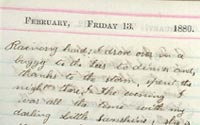 February, Friday 13. 1880.
Raining hard; I drove over in a
buggy to the
thanks to the storm, spent the
night there. In the evening
was all the time with my
darling little Sunshine;